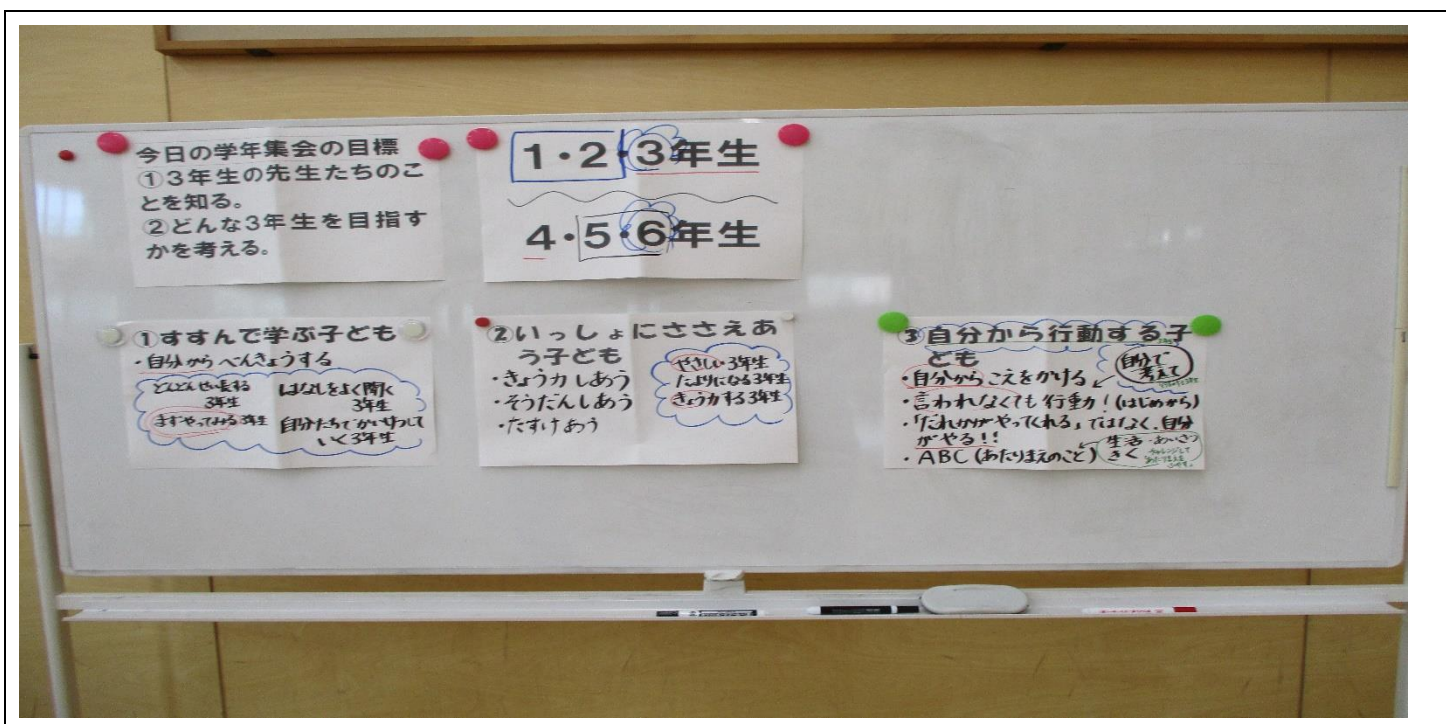 今日の学年集会の目標
①3年生の先生たちのこ
とを知る。
②どんな3年生を目指す
かを考える。
1・2・3年生
4・5・6年生
①すすんで学ぶ子ども
・自分からべんきょうする
どんどんせい長する
3年生
はなしをよく聞く
3年生
まずやってみる3年生
自分たちでかいけつして
いく3年生
②いっしょにささえあ
う子ども
・きょう力しあう
・そうだんしあう
・たすけあう
やさしい3年生
たよりになる3年生
きょう力する3年生
③自分から行動する子
ども
自分で
考えて
・自分からこえをかける
・言われなくても行動力!(はじめから)
・「だれかがやってくれる」ではなく、自分
がやる!!
・ABC(あたりまえのこと)
生活・あいさつ
きく